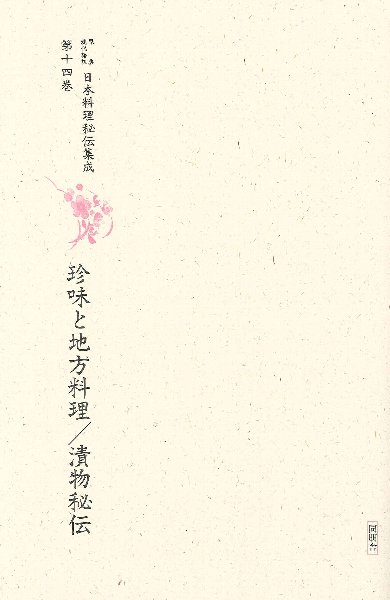 日本料理秘伝集成
第十四巻
珍味と地方料理／漬物秘伝
同朋舎